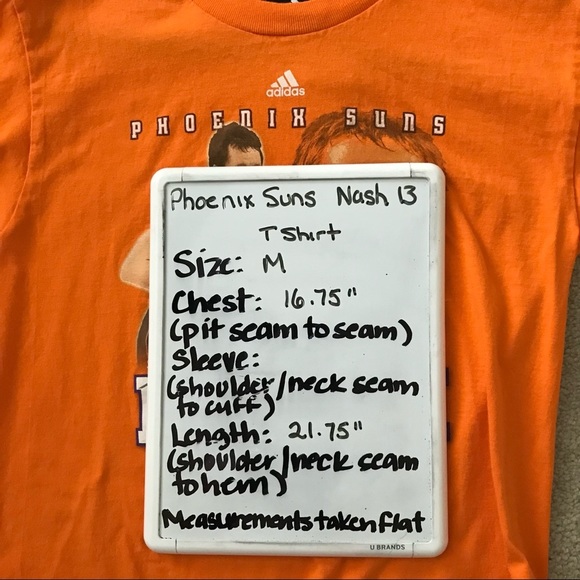 adidas
PHOENIX SUNS
Phoenix Suns Nash 13
T Shirt
Size: M
Chest: 16.75"
(pit seam to seam)
Sleeve:
(shoulder/neck seam
to cuff)
Length: 21.75"
(shoulder/neck seam
to hem)
Measurements taken flat
U BRANDS